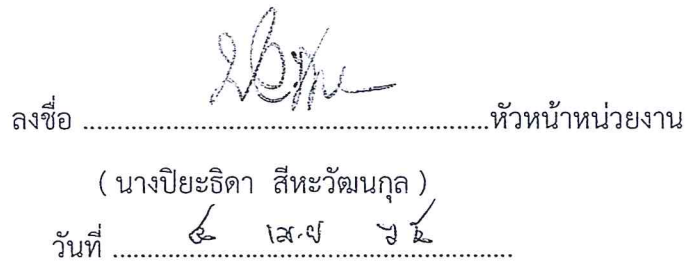 ลงชื่อ ..........................................................หัวหน้าหน่วยงาน
( นางปิยะธิดา สีหะวัฒนกุล )
วันที่ ..... เม.ย ..........